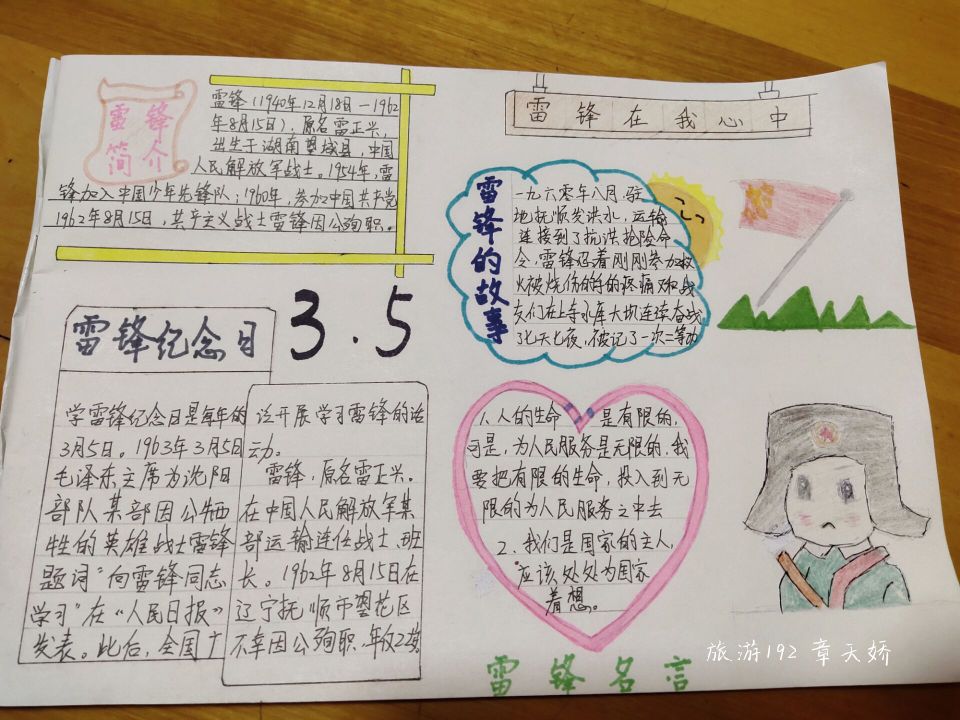 雷锋
简介
雷锋(1940年12月18日—1962
年8月15日),原名雷正兴,
出生于湖南望城县,中国
人民解放军战士。1954年,雷
锋加入中国少年先锋队;1960年,参加中国共产党
1962年8月15日,共产主义战士雷锋因公殉职。
雷锋在我心中
雷锋的故事
一九六零年八月,驻
地抚顺发洪水,运输
连接到了抗洪抢险命
令,雷锋忍着刚刚参加救
火被烧伤的的疼痛
友们在上寺水库大坝连续奋战
了七天七夜,被记了一次二等功
3.5
雷锋纪念日
学雷锋纪念日是每年的
3月5日。1963年3月5日
毛泽东主席为沈阳
部队某部因公牺
牲的英雄战士雷锋
题词"向雷锋同志
学习"在《人民日报》
发表。此后,全国广
泛开展学习雷锋的活
动。
雷锋,原名雷正兴。
在中国人民解放军某
部运输连任战士、班
长。1962年8月15日在
辽宁抚顺市望花区
不幸因公殉职,年仅22岁
1、人的生命是有限的,
可是,为人民服务是无限的,我
要把有限的生命,投入到无
限的为人民服务之中去
2、我们是国家的主人,
应该处处为国家
着想。
雷锋名言
旅游192 章天娇